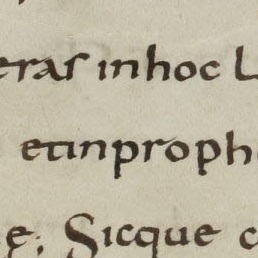 eras inhoc L
etinproph
e; Sicque c